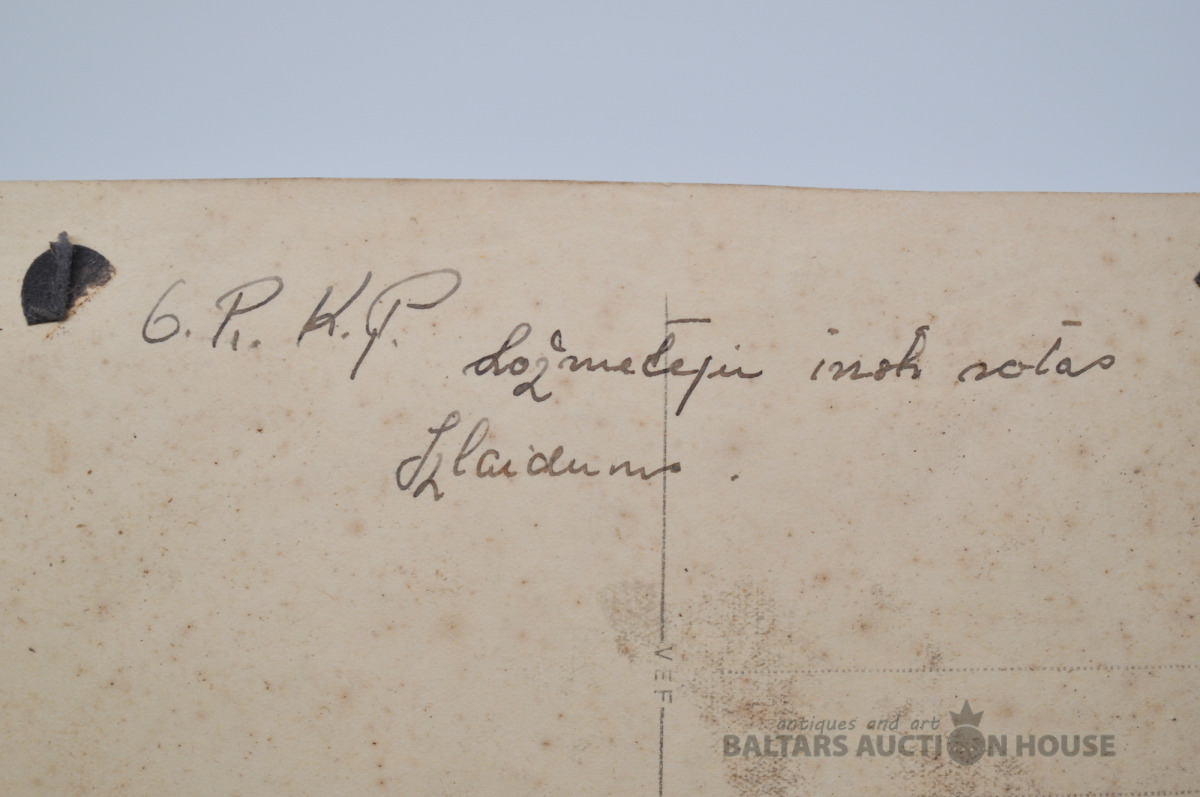 6. R. K. P. Ložmetēju insk rotas
Izlaidums.
VEF
antiques and art
BALTARS AUCTION HOUSE